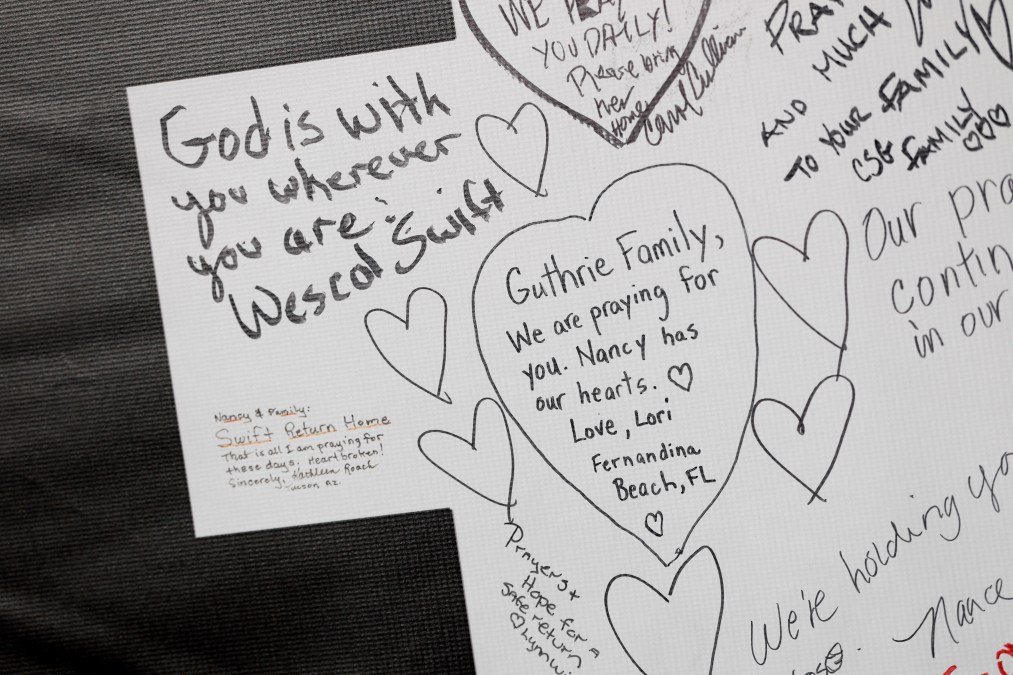 WE PRAY
YOU DAILY!
Please bring
her
Home
Carol Cullivan
PRAY
AND MUCH
TO YOUR FAMILY
CSG FAMILY
God is with
you wherever
you are.
Swift
Our
contin
in our
Guthrie Family,
We are praying for
you. Nancy has
our hearts. ♡
Love, Lori
Fernandina
Beach, FL
Nancy & Family:
Swift Return Home
That is all I am praying for
these days. Heartbroken!
Sincerely, Kathleen Roach
Tucson AZ.
Prayers +
Hope for
safe return
♡ Lynn
We're holding yo
Nance